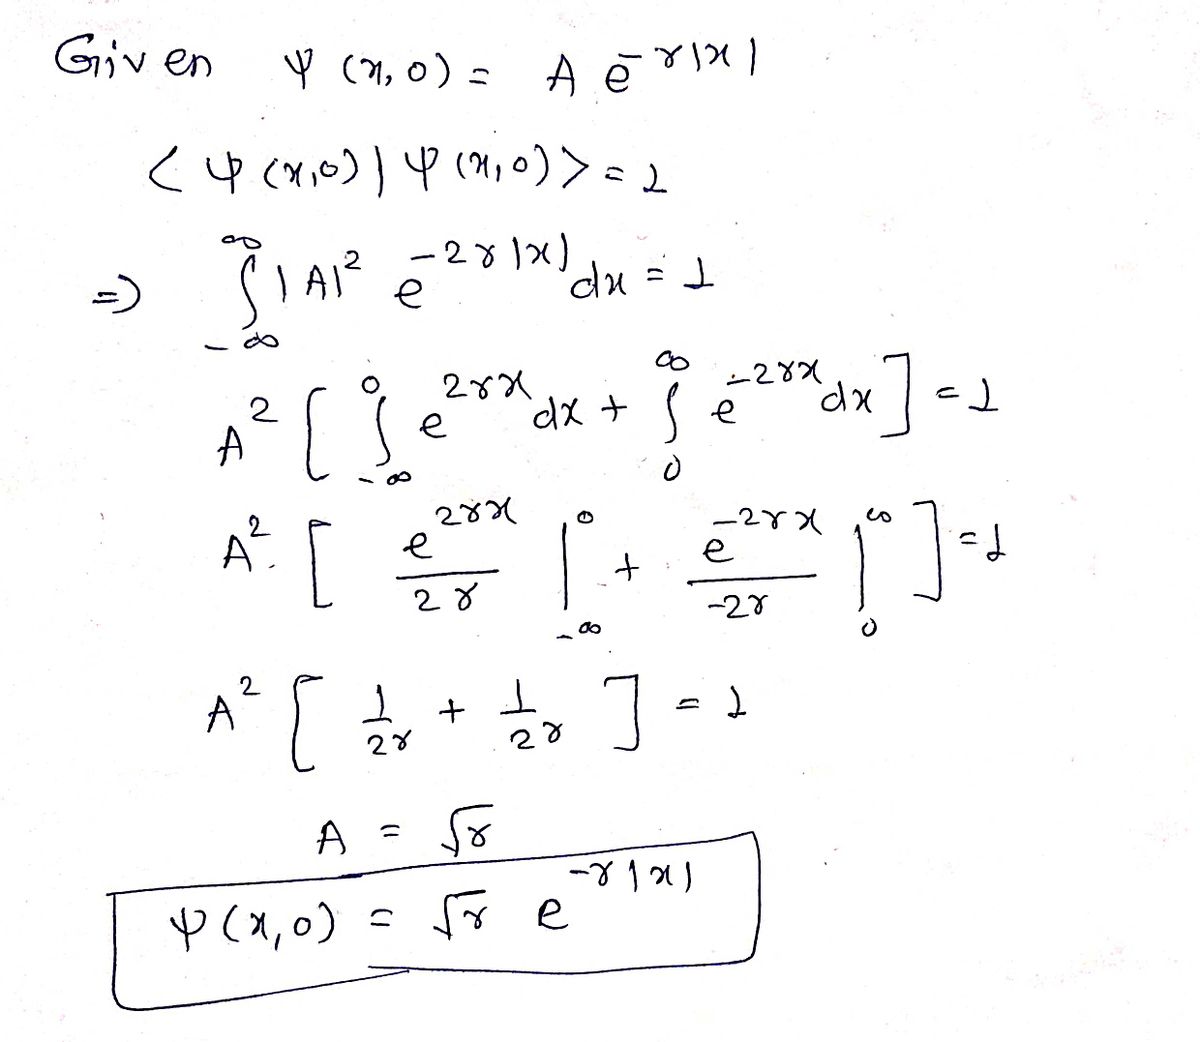 Given ψ(x,0) = A e^{-γ|x|}
<ψ(x,0)|ψ(x,0)> = 1
⇒ ∫_{-∞}^{∞} |A|² e^{-2γ|x|} dx = 1
A² [ ∫_{-∞}^{0} e^{2γx} dx + ∫_{0}^{∞} e^{-2γx} dx ] = 1
A² [ e^{2γx}/2γ |_{-∞}^{0} + e^{-2γx}/-2γ |_{0}^{∞} ] = 1
A² [ 1/2γ + 1/2γ ] = 1
A = √γ
ψ(x,0) = √γ e^{-γ|x|}